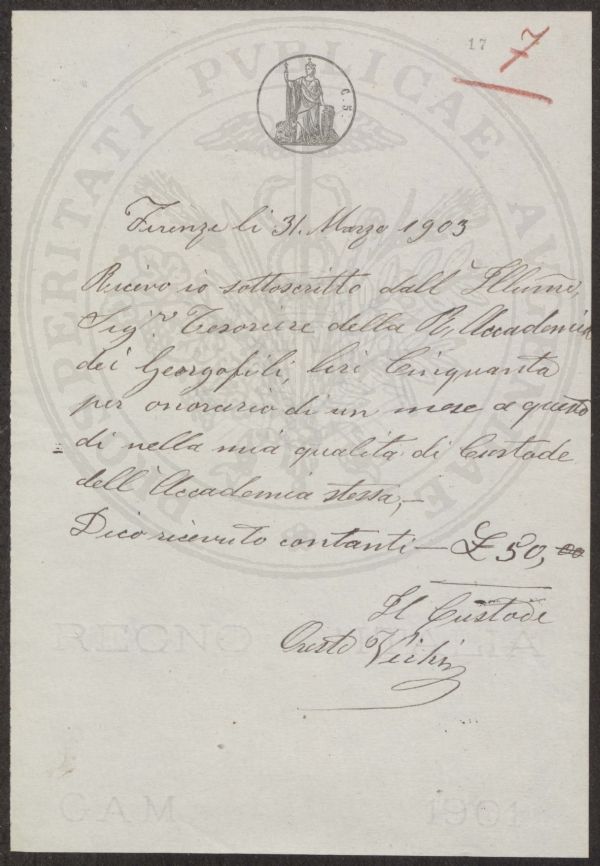 17 7
C. 5.
Firenze li 31. Marzo 1903
Ricevo io sottoscritto dall' Illumo,
Sigr Tesoriere della R. Accademia
dei Georgofili, liri Cinquanta
per onorario di un mese a questo
di nella mia qualita di Custode
dell' Accademia stessa,—
Dico ricevuto contanti — £ 50,00
Il Custode
PROSPERITATI PVBLICAE AVGENDAE
REGNO D'ITALIA
GAM 1901